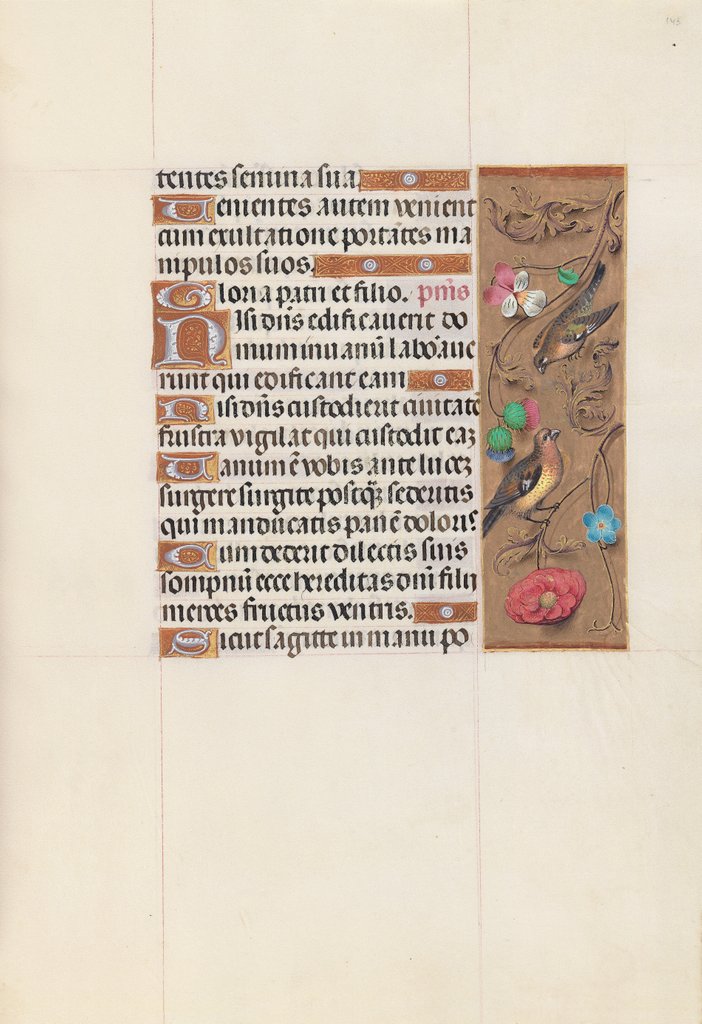 143
tentes semina sua.
Uenientes autem venient
cum exultatione portātes ma
nipulos suos.
Gloria patri et filio. p̄mˢ
Nisi dn̄s edificauerit do
mum inuanū laboraue
runt qui edificant eam
Nisi dn̄s custodierit ciuitatē
frustra vigilat qui custodit eaꝫ
Uanum ē vobis ante luceꝫ
surgere surgite postqᷓꝫ sederitis
qui manducatis panē doloris
Cum dederit dilectis suis
sompnū ecce hereditas dn̄i filij
merces fructus ventris.
Sicut sagitte in manu po